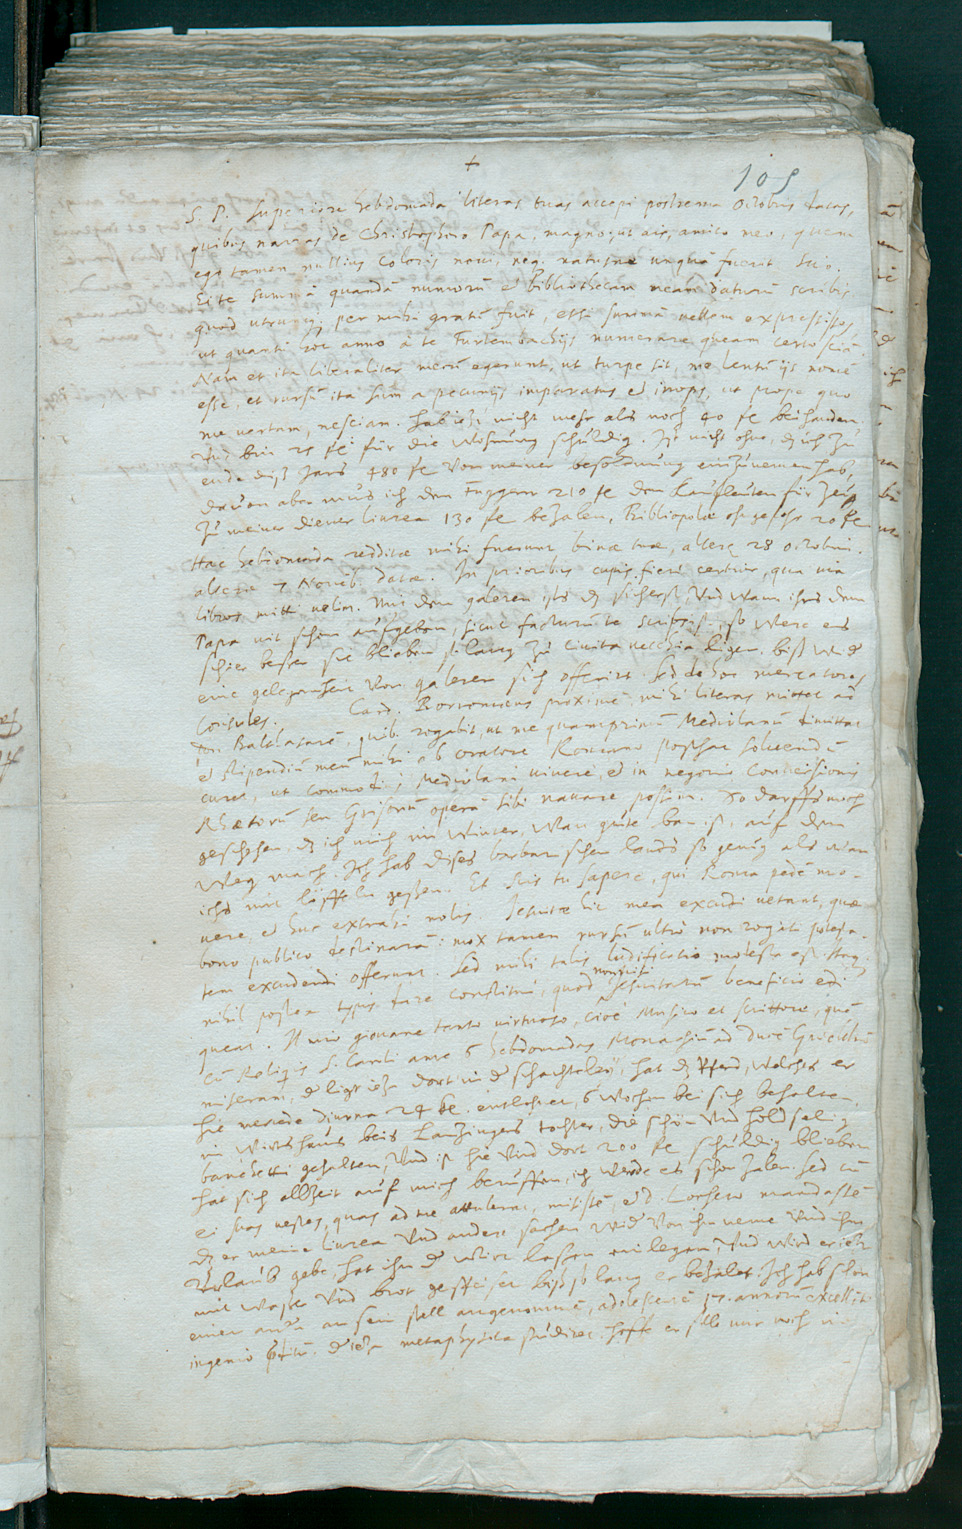 +
105
S. P. Superiore hebdomada literas tuas accepi postrema Octobris datas,
quibus narras de Christophoro Papa, magno, ut ais, amico meo, quem
ego tamen, nullius coloris novi, neq. natusne unquā fuerit scio.
Ei te summā quandā numorū et Bibliothecam meam daturū scribis
quod utrumq; per mihi gratū fuit, etsi summā vellem expressisses,
ut quanti hoc anno à te Furtembachijs numerare queam certo sciā.
Nam et ita liberaliter mecū egerunt, ut turpe sit, me lentū ijs
esse, et rursū ita sum a pecunijs imparatus et inops, ut prope quo
me vertam, nesciam. Hab ietz nicht mehr als noch 40 fl beihanden,
Und bin 25 fl für die Wohnung schuldig. Ist nicht ohne, dz ich zu
ende diß Jars 480 fl von meiner besoldnung einzunemen hab,
davon aber mus ich den Fuggern 210 fl den Kaufleuten für Zeug
zu meiner diener livrea 130 fl bezalen, Bibliopolae 20 fl
Hac hebdomada redditae mihi fuerunt binae tuae, alterę 28 octobris.
alterae 7 Novēb. datae. In prioribus cupis fieri certior, qua via
libros mitti velim. Mit den galeren ists dz sicherst, Und wann ihrs dem
Papa nit schon aufgeben, sicut facturū te scripsisti, so were es
schier besser sie blieben so lang zu Civita vecchia ligen, biß wid
eine gelegenheit von galeren sich offerirt. Sed de hoc mercatores
consules. Card. Borromeus proximè mihi literas mittet ad
Dn Balthasarē, quib. rogabit, ut me quamprimū Mediolanū dimittat
et stipendiū meū mihi ab oratore Romano posthac solvendū
curet, ut commodè Mediolani vivere, et in negotio conversionis
Rhaetorū seu Grisonū operā sibi navare possim. So darffs noch
geschehen, dz ich mich im Winter, Wan gute ban ist, auf den
Weg mach. Ich hab dises barbarischen lands so genug als wan
ichs mit löffeln gessen. Et scis tu sapere, qui Roma pedē mo-
vere, et huc extrahi nolis. Jesuitae hic mea excudi vetant, quae
bono publico destinarā: mox tamen rursū ultrò non rogati potesta-
tem excudendi offerunt. Sed mihi talis ludificatio molesta est Itaq.
nihil postea typis dare constitui, quod nonnisi Jesuitarū beneficio edi
queat. Il mio giovane tanto virtuoso, cioè Musico et scrittore, quē
cū Reliquijs S. Caroli ante 5 hebdomadas Monachiū ad ducē Guilelmū
miseram, ligt ietz dort in d schachtelen, hat dz Pferd, welches er
hie mercede diurna 24 kr. entlehnet, 6 wochen bei sich behalten,
im Wirtshaus beis Lanzingers tochter, die schön und holdselig
banchetti gehalten, Und ist hie Und dort 200 fl schuldig blieben
hat sich allzeit auf mich beruffen, ich werde es schon zalen. Sed cū
ei suas vestes, quas ad me attulerat, misissē, et d. mandassē
dz er meine livrea Und andere sachen wid von ihm neme Und ihm
Urlaub gebe, hat ihn d Wirt lassen einlegen, Und wird er ietz
mit wasser Und brot gespeiset biß so lang er bezalet. Ich hab schon
einen andern an sein stell angenommē, adolescentē 17. annorū excellēte
ingenio praeditū, d ietz metaphysica studiret, hoffe er solle mir noch